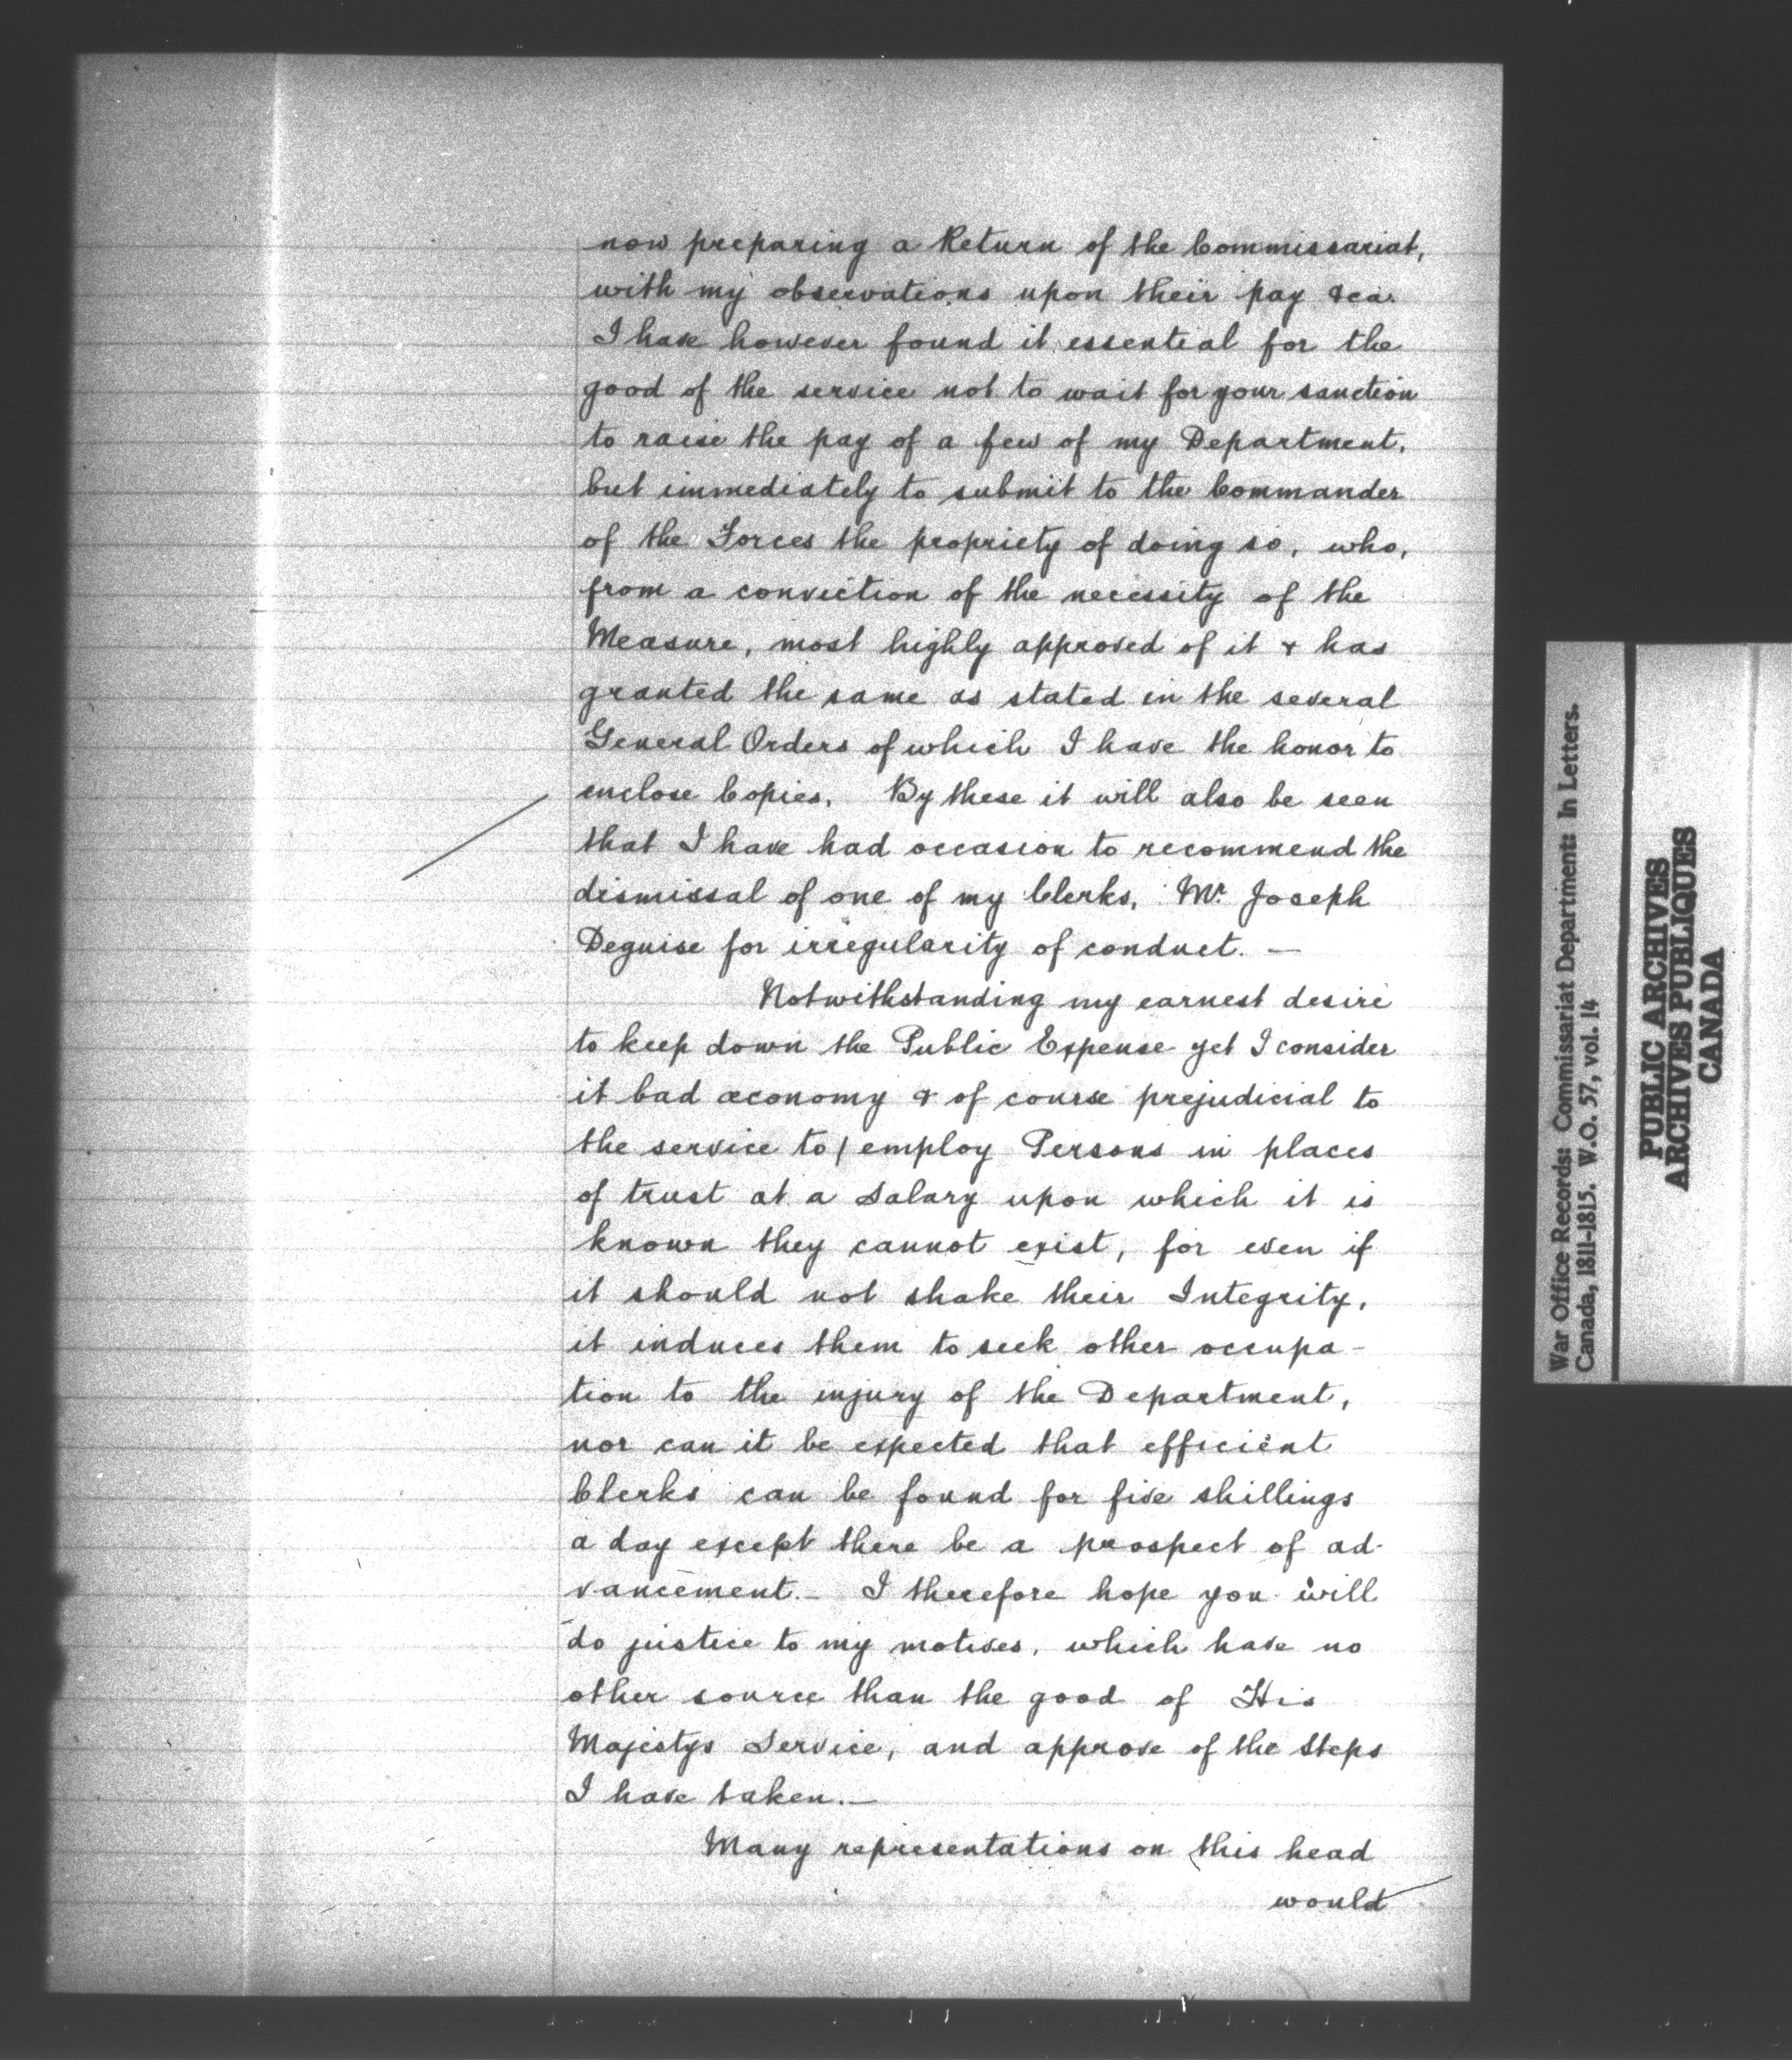 now preparing a Return of the Commissariat,
with my observations upon their pay &ca.
I have however found it essential for the
good of the service not to wait for your sanction
to raise the pay of a few of my Department,
but immediately to submit to the Commander
of the Forces the propriety of doing so, who,
from a conviction of the necessity of the
Measure, most highly approved of it & has
granted the same as stated in the several
General Orders of which I have the honor to
enclose Copies. By these it will also be seen
that I have had occasion to recommend the
dismissal of one of my Clerks, Mr. Joseph
Deguise for irregularity of conduct. —
Notwithstanding my earnest desire
to keep down the Public Expense yet I consider
it bad œconomy & of course prejudicial to
the service to / employ Persons in places
of trust at a Salary upon which it is
known they cannot exist, for even if
it should not shake their Integrity,
it induces them to seek other occupa-
tion to the injury of the Department,
nor can it be expected that efficient
Clerks can be found for five shillings
a day except there be a prospect of ad-
vancement. — I therefore hope you will
do justice to my motives, which have no
other source than the good of His
Majestys Service, and approve of the Steps
I have taken. —
Many representations on this head
would
War Office Records: Commissariat Department: In Letters.
Canada, 1811-1815. W.O. 57, vol. 14
PUBLIC ARCHIVES
ARCHIVES PUBLIQUES
CANADA